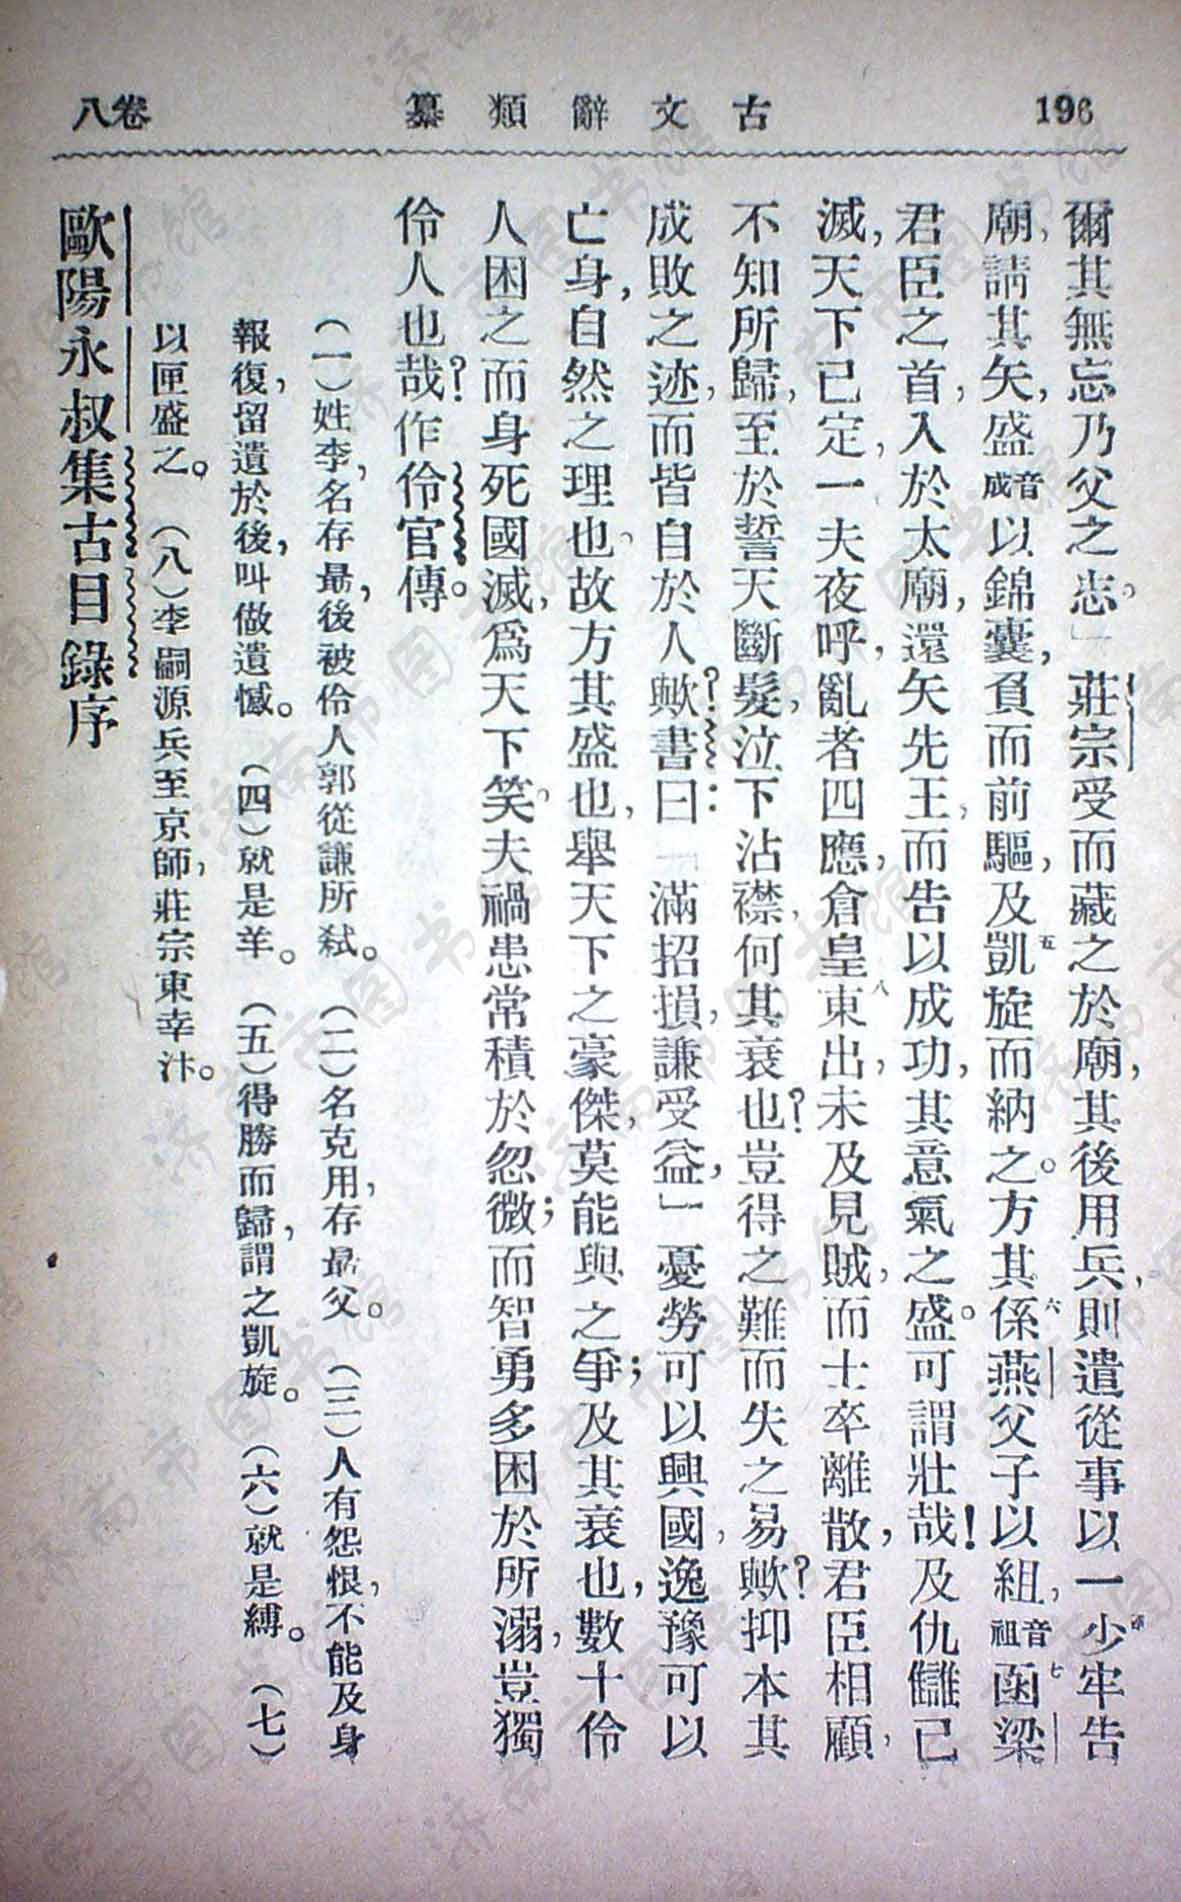 196
古文辭類纂
卷八
爾其無忘乃父之志。」莊宗受而藏之於廟，其後用兵，則遣從事以一少牢告
廟，請其矢，盛音成以錦囊，負而前驅，及凱五旋而納之。方其係六燕父子以組，音祖函七梁
君臣之首，入於太廟，還矢先王，而告以成功，其意氣之盛。可謂壯哉！及仇讎已
滅，天下已定，一夫夜呼，亂者四應，倉皇八東出，未及見賊，而士卒離散，君臣相顧，
不知所歸，至於誓天斷髮，泣下沾襟，何其衰也？豈得之難而失之易歟？抑本其
成敗之迹，而皆自於人歟？書曰：「滿招損，謙受益，」憂勞可以興國，逸豫可以
亡身，自然之理也。故方其盛也，舉天下之豪傑，莫能與之爭；及其衰也，數十伶
人困之而身死國滅，爲天下笑。夫禍患常積於忽微；而智勇多困於所溺，豈獨
伶人也哉？作伶官傳。
（一）姓李，名存勗，後被伶人郭從謙所弒。（二）名克用，存勗父。（三）人有怨恨，不能及身
報復，留遺於後，叫做遺憾。（四）就是羊。（五）得勝而歸，謂之凱旋。（六）就是縛。（七）
以匣盛之。（八）李嗣源兵至京師，莊宗東幸汴。
歐陽永叔集古目錄序